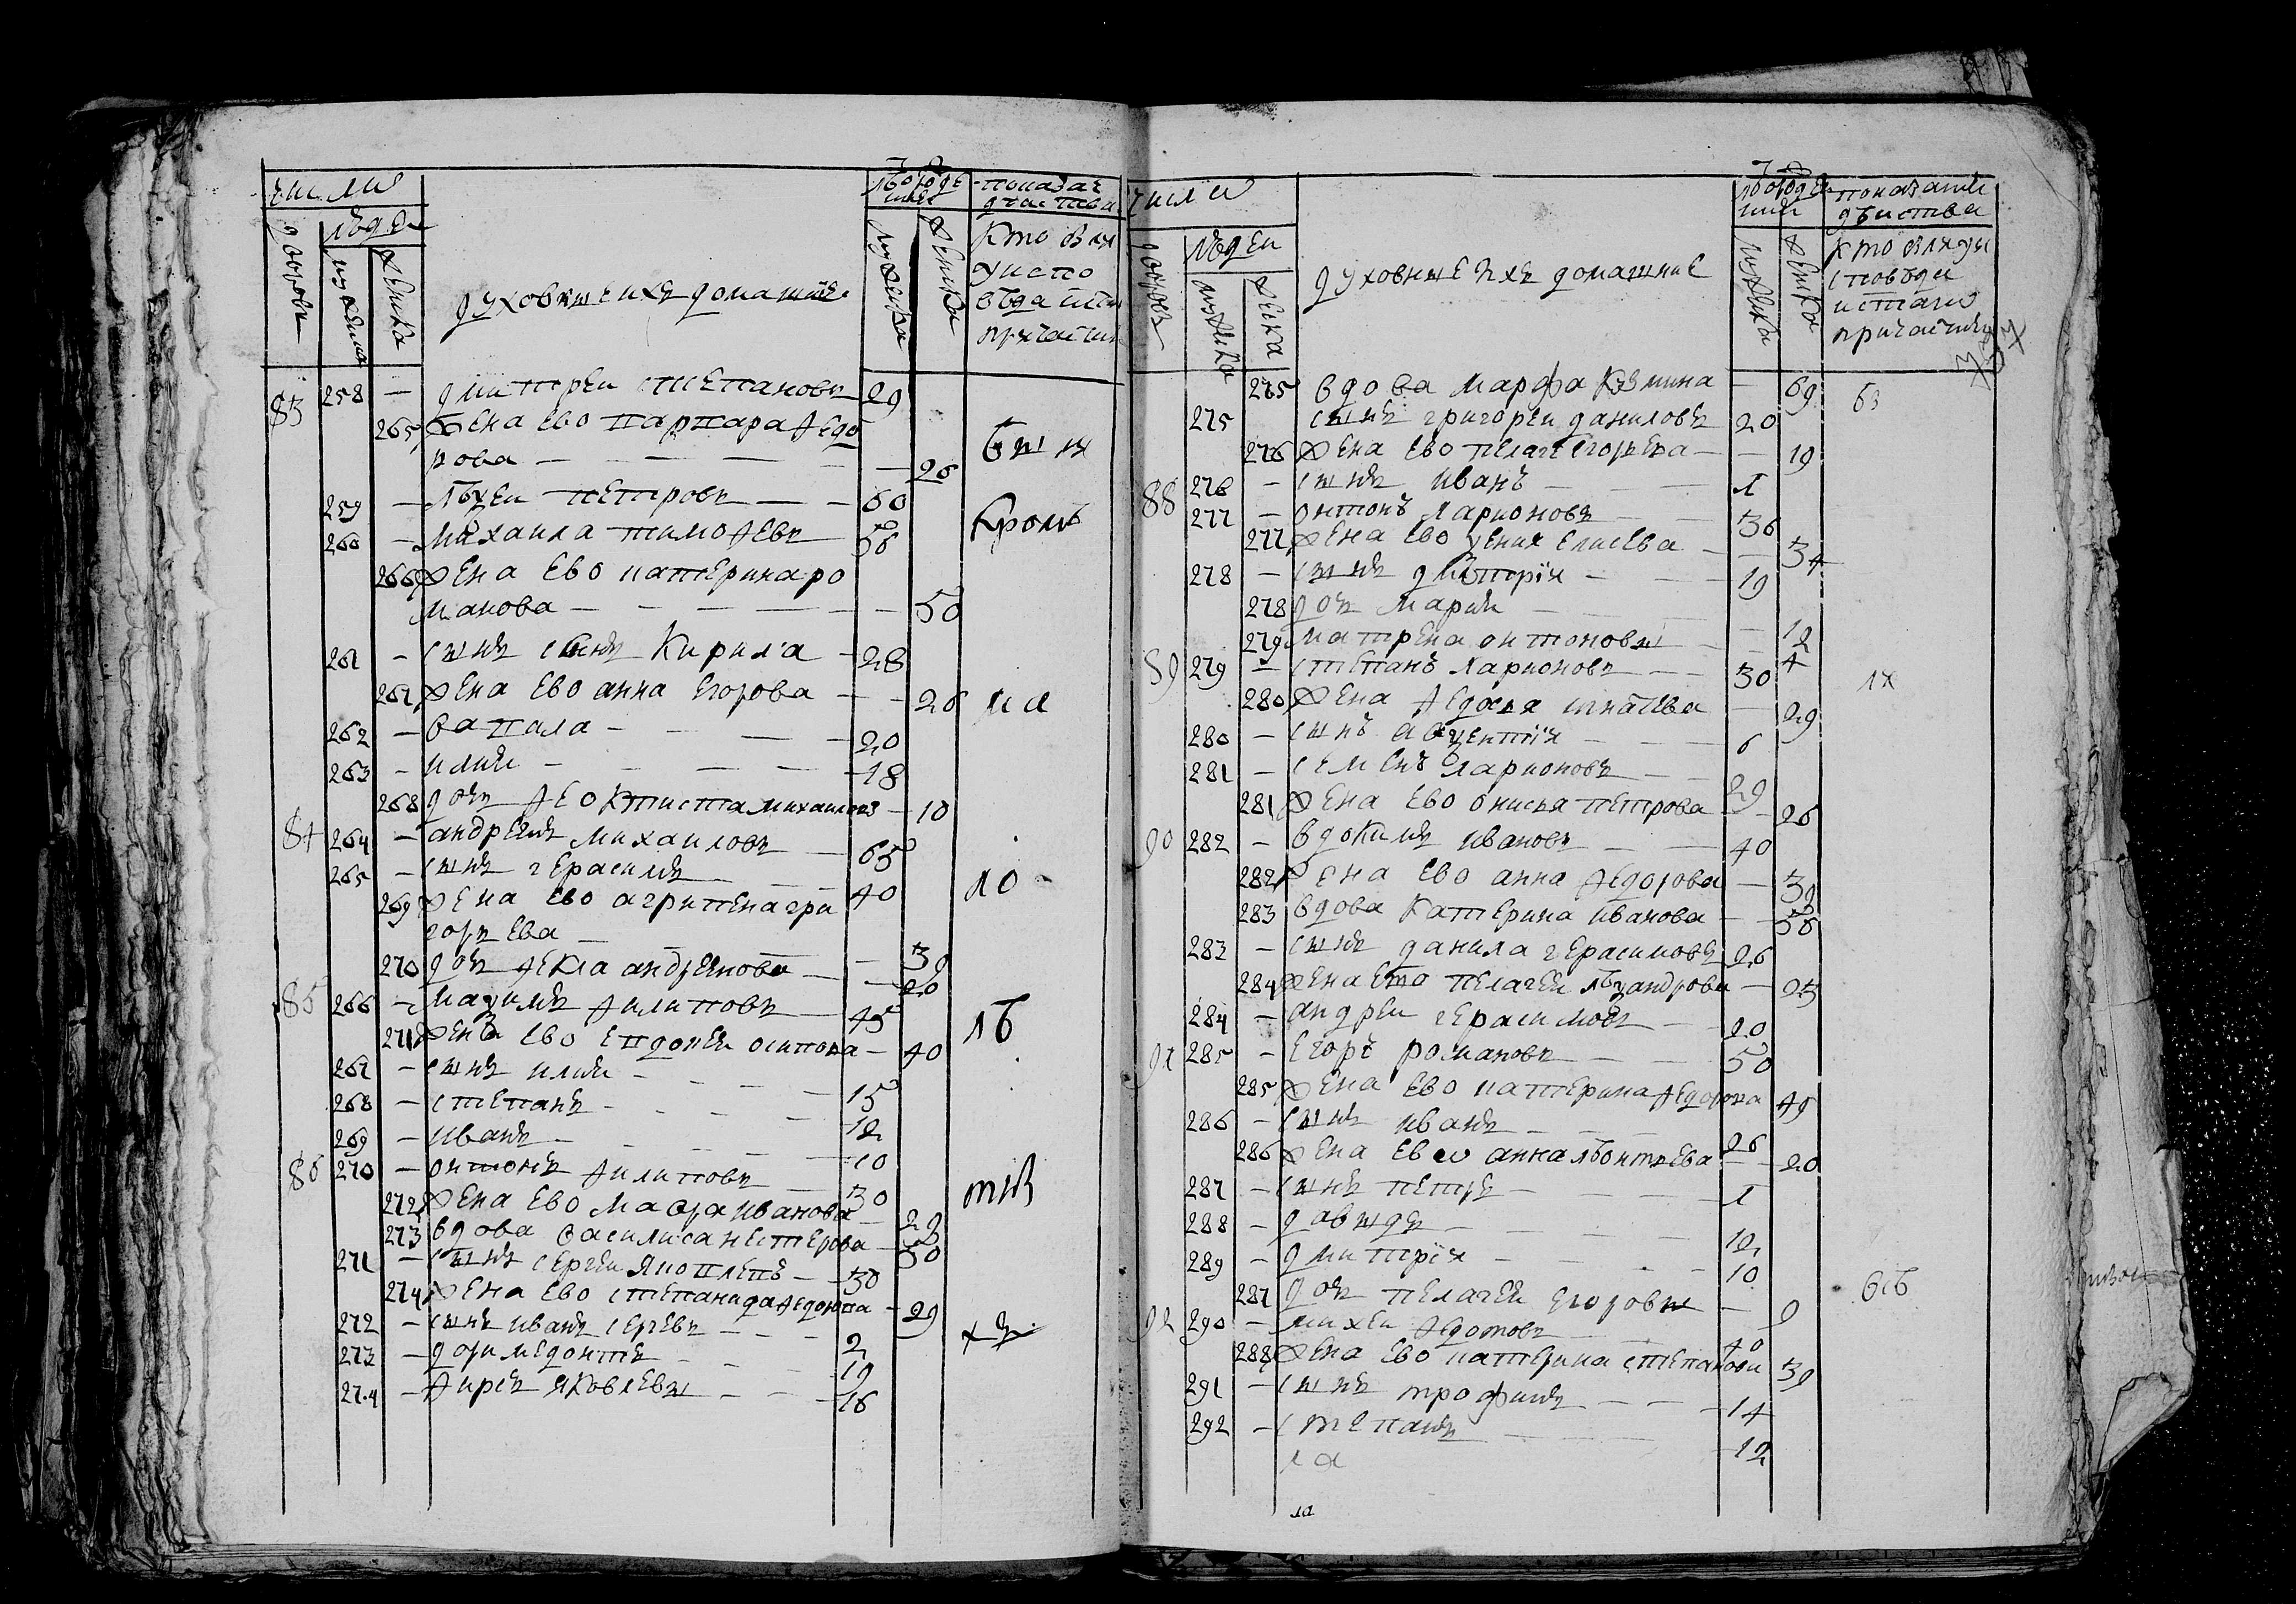 числи
людеи
дворовъ
мужеска
женска
духовныя и ихъ домашние
мужеска
женска
кто были
у испо
веди и св
причастия
83 258 — дмитреи степановъ 29
265 жена ево парпара ѳедо
рова — 26
259 — михеи петровъ — 60
260 — михаила тимоѳевъ 56
266 жена ево катерина ро
манова — 50
261 — сынъ Кирила — 28
267 жена ево анна егорова — 26
262 — вапила — 20
263 — илия — 18
268 дочь ѳеоктиста михаилова — 10
84 264 — андреянъ михаиловъ — 65
265 — сынъ герасимъ — 40
269 жена ево агрипена гри
горьева — 39
270 дочь ѳекла андреянова — 20
85 266 — мазимъ ѳилиповъ — 45
271 жена ево епдокея осипова — 40
267 — сынъ илия — 15
268 — степанъ — 12
269 — иванъ — 10
86 270 — онтонъ ѳилиповъ — 30
272 жена ево мавра иванова — 29
273 вдова василиса нестерова — 50
271 — сынъ сергеи — 30
274 жена ево степанида ѳедорова — 29
272 — сынъ иванъ сергевъ — 2
273 — доримедонтъ — 19
274 — ѳирсъ яковлевъ — 16
быи
кроме
на
ло
лѣ
тнѣ
хъ
числи
людеи
дворовъ
мужеска
женска
духовные и ихъ домашние
мужеска
женска
показание
действа
кто были у и
споведи
и стаго
причастия
275 вдова марфа Кузмина — 69
275 сынъ григореи даниловъ 20
276 жена ево пелаге егорьева — 19
276 — сынъ иванъ — 1
88 277 — онтонъ ларионовъ — 36
277 жена ево ксения елисева — 34
278 — сынъ дмитрiи — 19
278 дочь мария — 12
279 матрена онтоновы — 4
89 279 — степанъ ларионовъ — 30
280 жена ѳедосья игнатева — 29
280 — сынъ авксентiи — 6
281 — семенъ ларионовъ — 29
281 жена ево онисья петрова — 26
90 282 — евдокимъ ивановъ — 40
282 жена ево анна ѳедорова — 39
283 вдова катерина иванова — 56
283 — сынъ данила герасимовъ 26
284 жена ево пелагея — 25
284 — андреи герасимовъ — 20
91 285 — егоръ романовъ — 50
285 жена ево катерина ѳедорова 49
286 — сынъ иванъ — 26
286 жена ево анна леонтьева — 20
287 — сынъ петръ — 1
288 — давыдъ — 12
289 — дмитрiи — 10
287 дочь пелагея егоровы — 9
92 290 — михеи ѳедотовъ — 40
288 жена ево катерина степанова 39
291 — сынъ трофимъ — 14
292 — степанъ — 12
ла